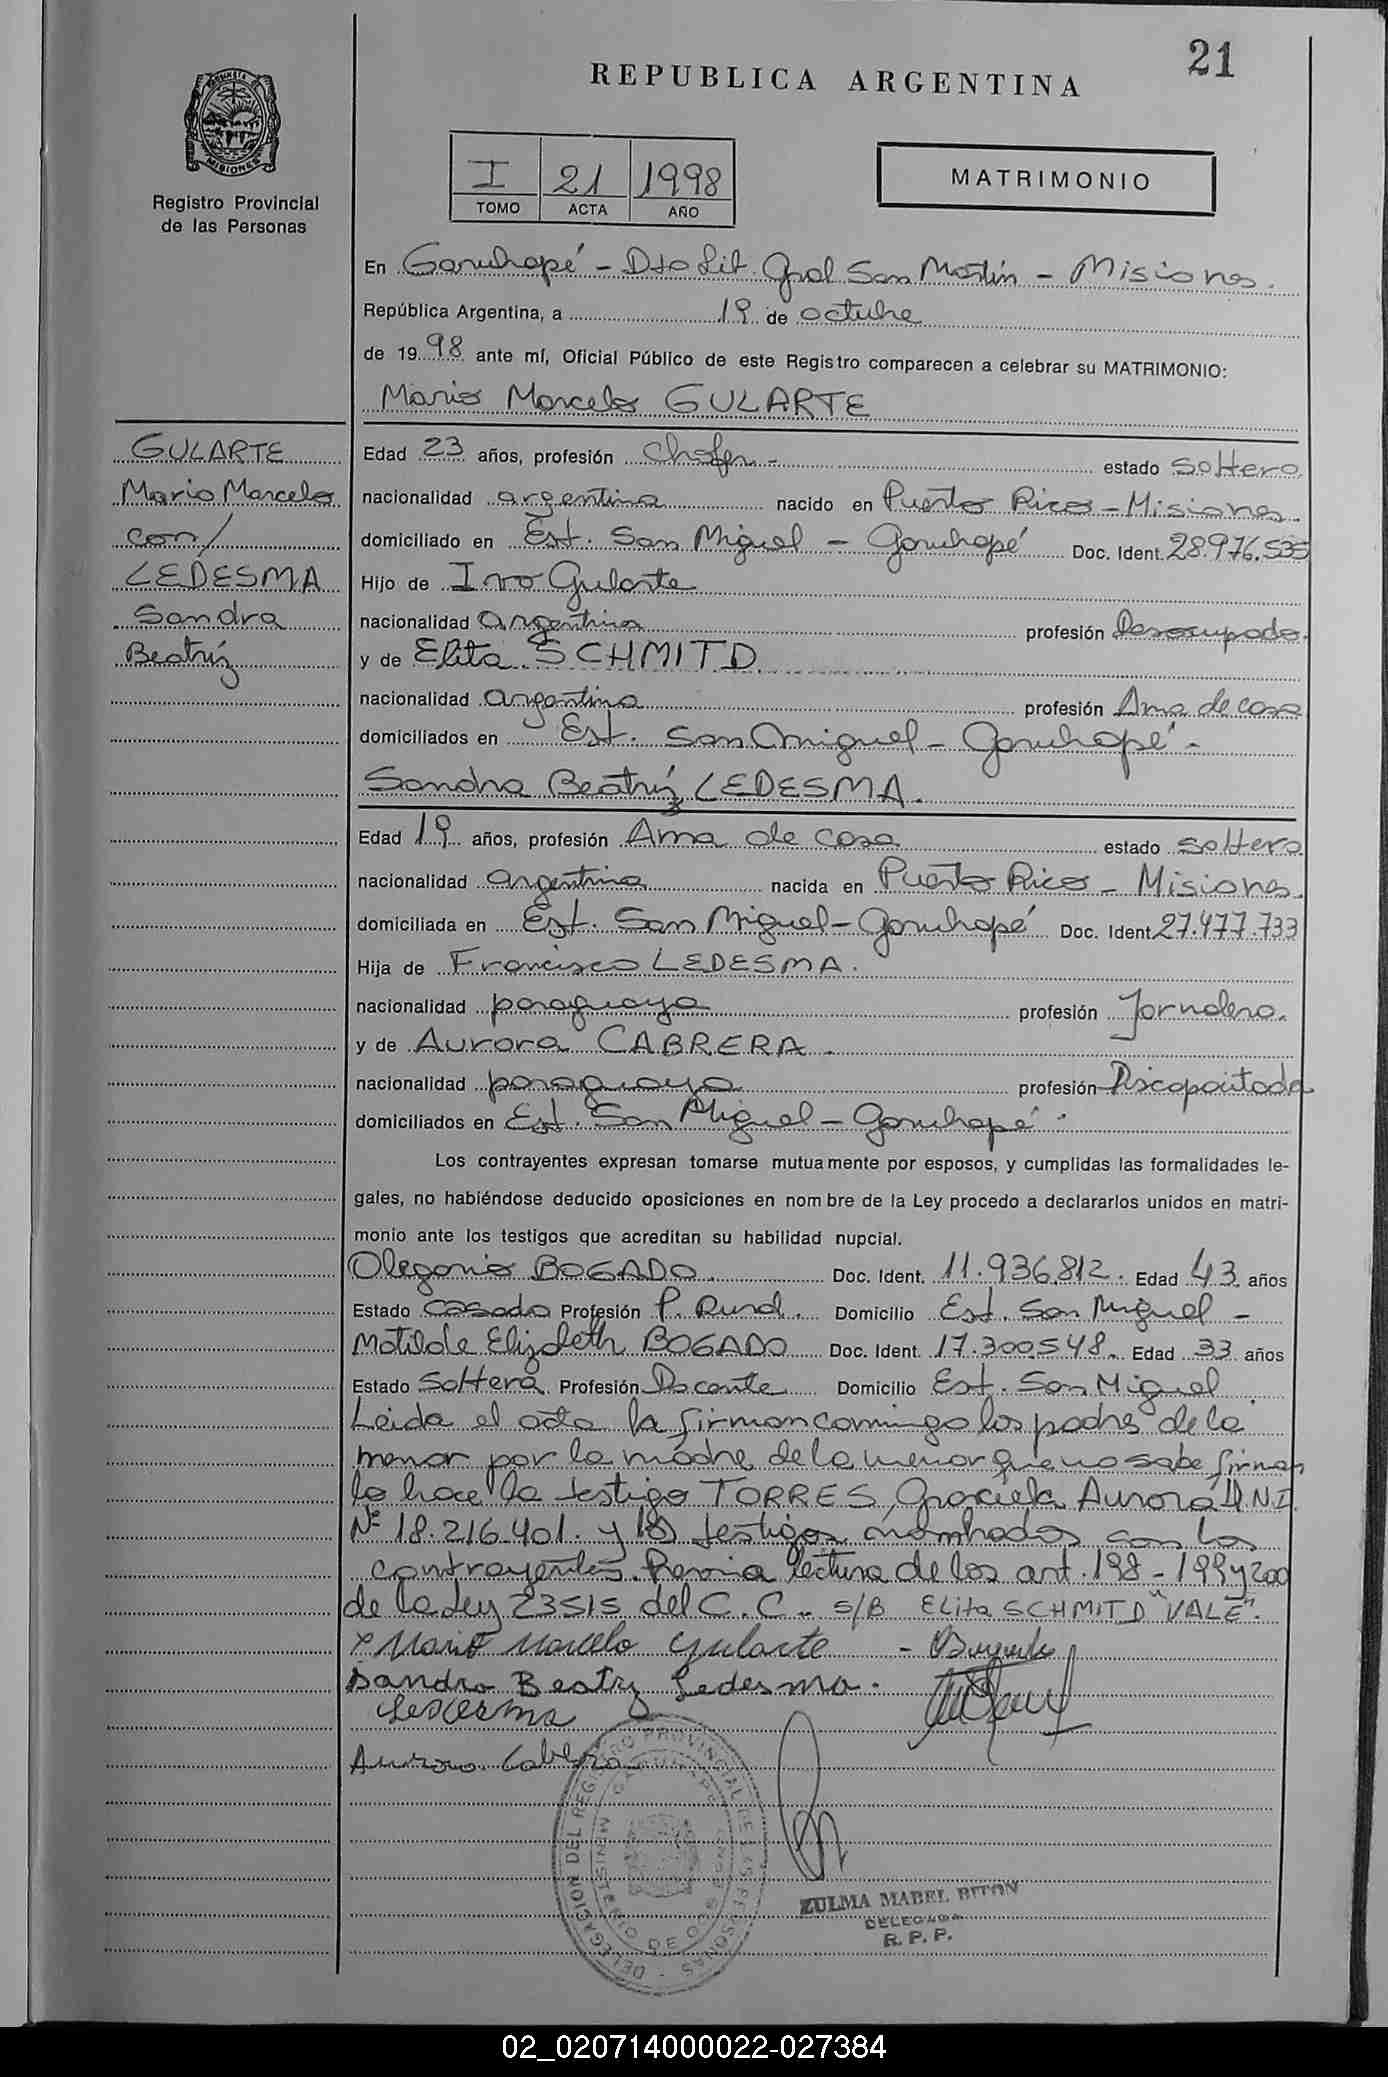 21
REPUBLICA ARGENTINA
MISIONES
Registro Provincial
de las Personas
I 21 1998
TOMO ACTA AÑO
MATRIMONIO
En Garuhapé - Dto Lib. Gral San Martín - Misiones.
República Argentina, a 19 de octubre
de 1998 ante mí, Oficial Público de este Registro comparecen a celebrar su MATRIMONIO:
Mario Marcelo GULARTE
GULARTE
Mario Marcelo
con/
LEDESMA
Sandra
Beatríz
Edad 23 años, profesión Chofer - estado soltero
nacionalidad argentina nacido en Puerto Rico - Misiones.
domiciliado en Est. San Miguel - Garuhapé Doc. Ident. 28.976.535
Hijo de Ivo Gularte
nacionalidad argentina profesión Desocupado.
y de Elita SCHMITD
nacionalidad argentina profesión Ama de casa
domiciliados en Est. San Miguel - Garuhapé -
Sandra Beatríz LEDESMA.
Edad 19 años, profesión Ama de casa estado soltera
nacionalidad argentina nacida en Puerto Rico - Misiones.
domiciliada en Est. San Miguel - Garuhapé Doc. Ident 27.477.733
Hija de Francisco LEDESMA.
nacionalidad paraguaya profesión Jornalero.
y de Aurora CABRERA.
nacionalidad paraguaya profesión Discapacitada
domiciliados en Est. San Miguel - Garuhapé.
Los contrayentes expresan tomarse mutuamente por esposos, y cumplidas las formalidades le-
gales, no habiéndose deducido oposiciones en nombre de la Ley procedo a declararlos unidos en matri-
monio ante los testigos que acreditan su habilidad nupcial.
Olegario BOGADO. Doc. Ident. 11.936.812. Edad 43 años
Estado Casado Profesión P. Rural. Domicilio Est. San Miguel -
Matilde Elizabeth BOGADO Doc. Ident. 17.300.548. Edad 33 años
Estado Soltera Profesión Docente Domicilio Est. San Miguel.
Leida el acta la firman conmigo los padres de la
menor por la madre de la menor que no sabe firmar
lo hace la testigo TORRES, Graciela Aurora D.N.I.
Nº 18.216.401. y los testigos nombrados con los
contrayentes. Previa lectura de los art. 198 - 199 y 200
de la Ley 23515 del C.C.. S/B ELita SCHMITD "VALE".
x Mario Marcelo Gularte -
Sandra Beatriz Ledesma.
Ledesma
Aurora Cabrera
DELEGACION DEL REGISTRO PROVINCIAL DE LAS PERSONAS
MINISTERIO DE GOB
ZULMA MABEL BITON
DELEGADA
R. P. P.
02_020714000022-027384